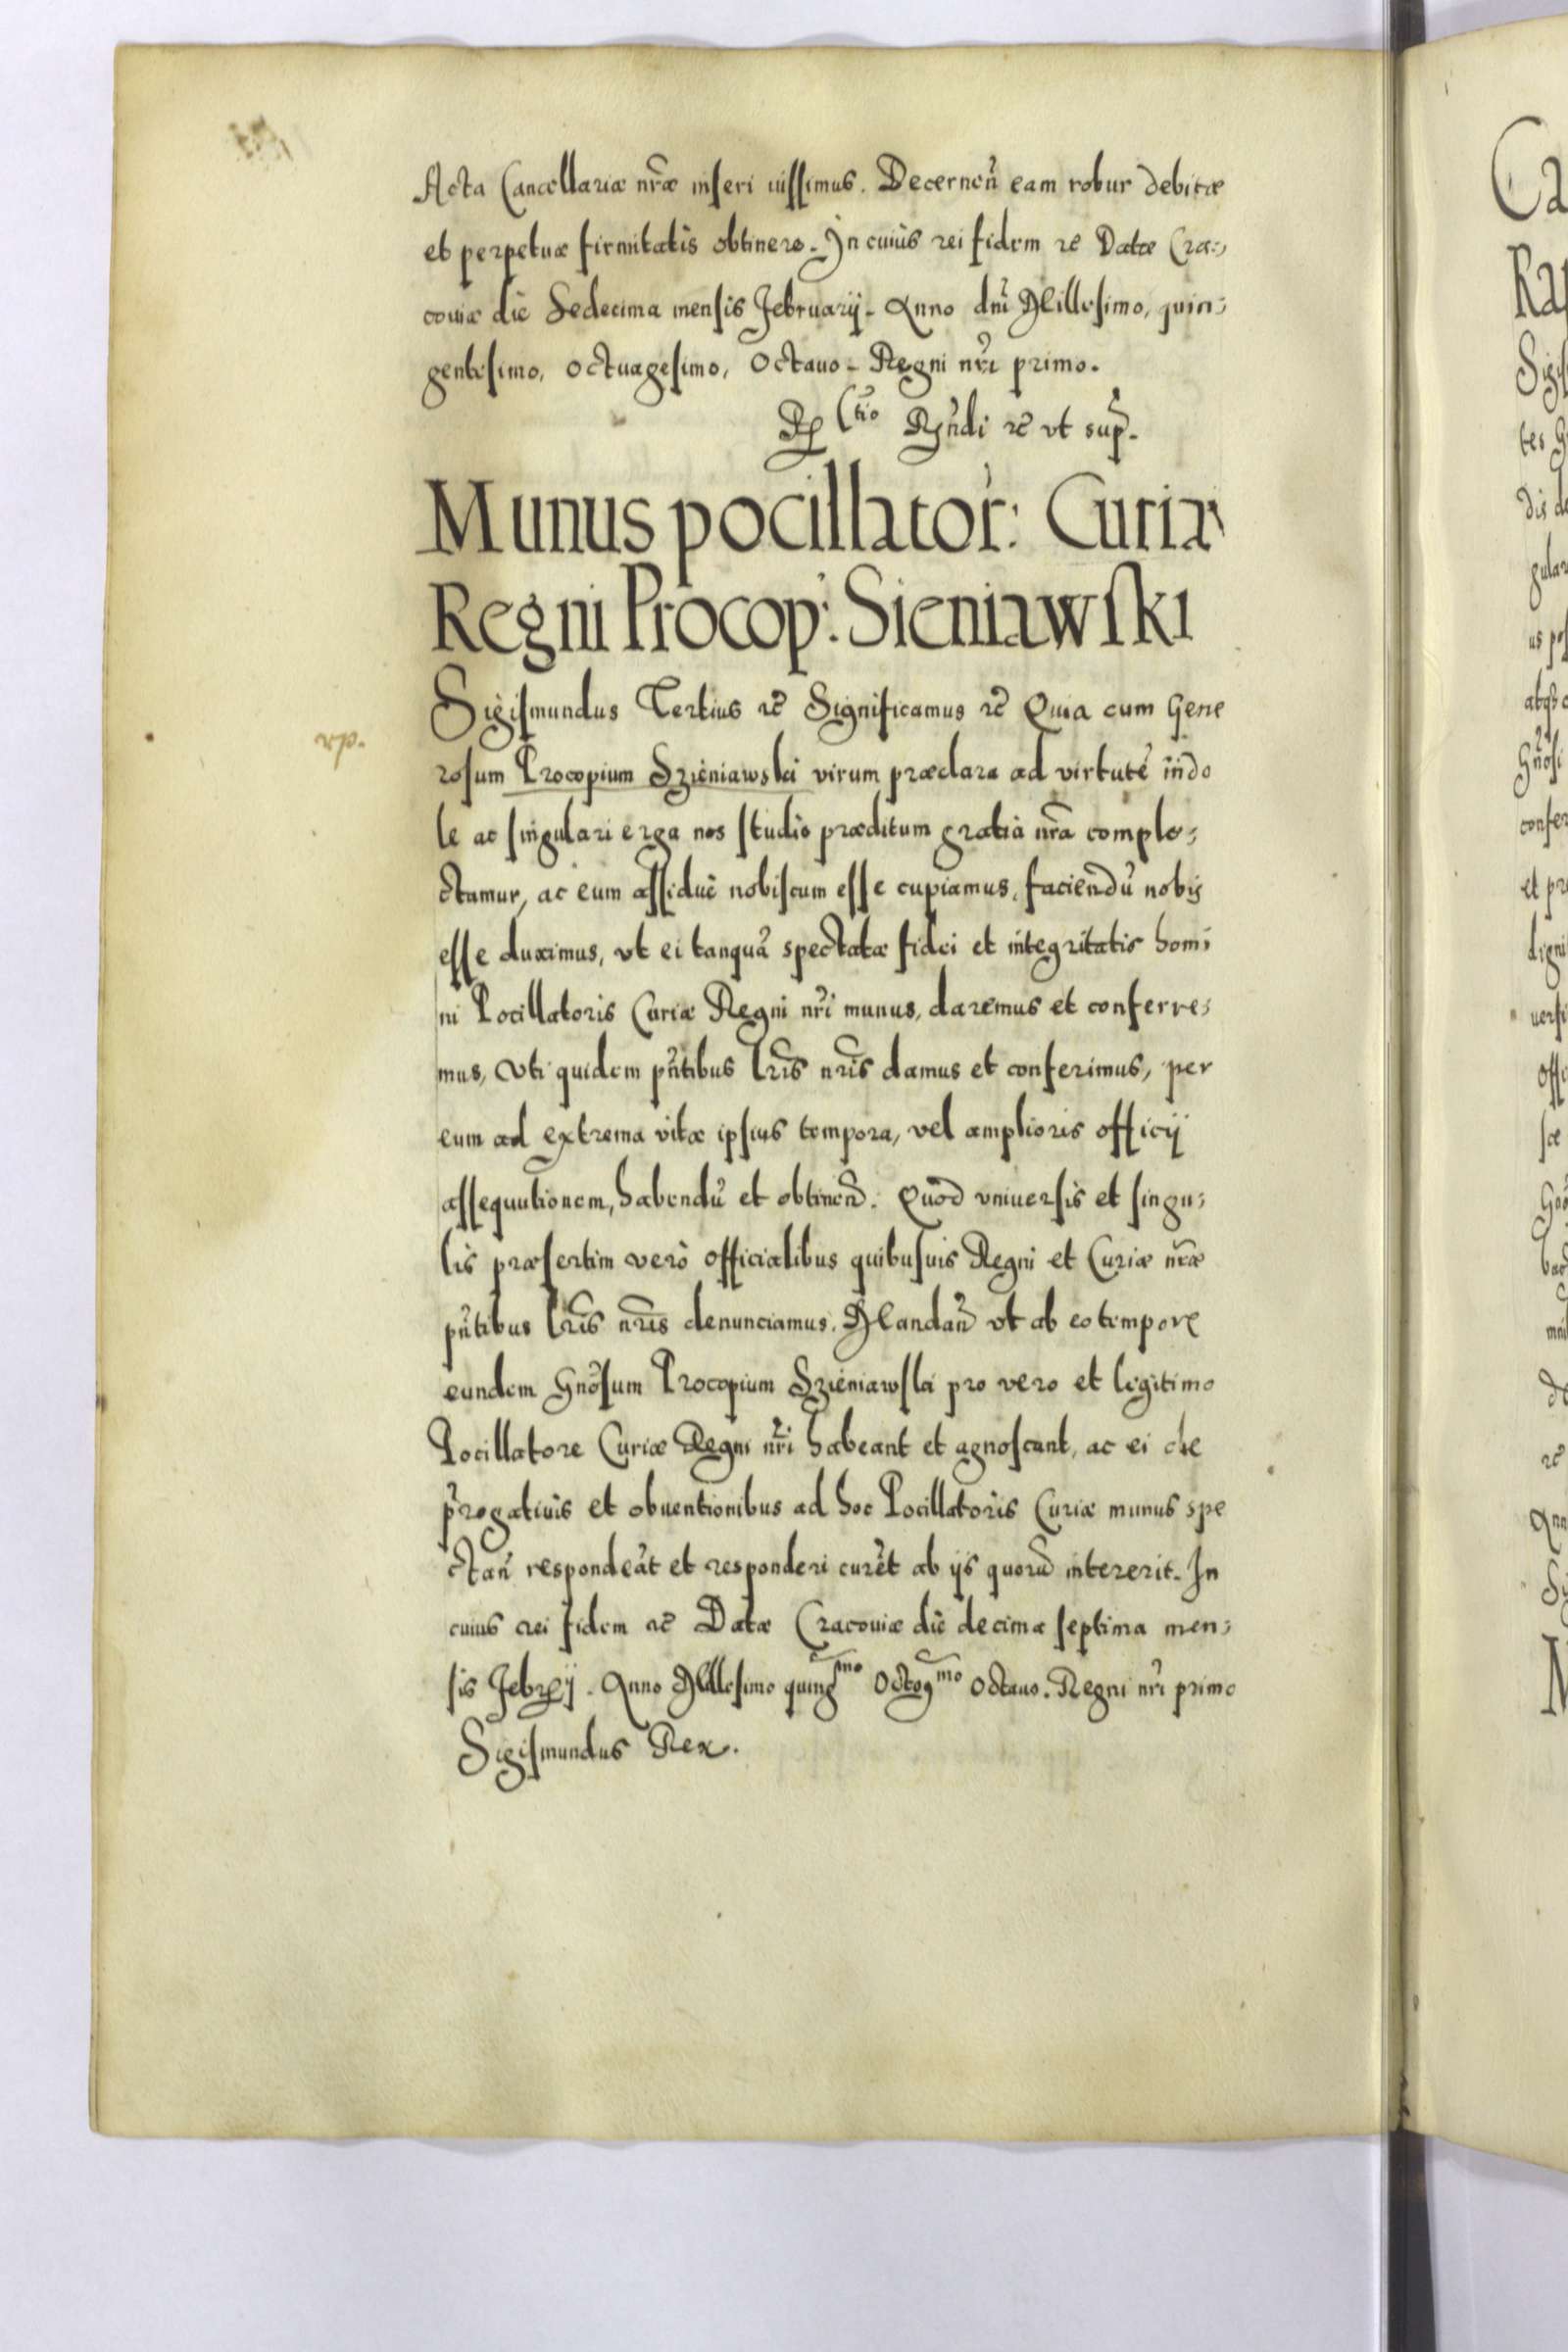 Acta Cancellariæ nr̃æ inseri iussimus. Decernen̄ eam robur debitæ
et perpetuæ firmitatis obtinere. In cuius rei fidem ꝛc̃ Datæ Cra:,
couiæ die Sedecima mensis Februarij. Anno dnĩ Millesimo, quin:
gentesimo, octuagesimo, Octauo. Regni nr̃i primo.
Rp Ctio Rn̄di ꝛc̃ vt sup̃.
Munus pocillator: Curiæ
Regni Procop: Sieniawski
Sigismundus Tertius ꝛc̃ Significamus ꝛc̃ Quia cum Gene
rosum Procopium Szieniawski virum præclara ad virtutẽ indo
le ac singulari erga nos studio præditum gratia nr̃a comple:
ctamur, ac eum assidue nobiscum esse cupiamus, faciendũ nobis
esse duximus, vt ei tanquã spectatæ fidei et integritatis homi
ni Pocillatoris Curiæ Regni nr̃i munus, daremus et conferre:
mus, Vti quidem pñtibus Lr̃is nr̃is damus et conferimus, per
eum ad extrema vitæ ipsius tempora, vel amplioris officij
assequutionem, habendũ et obtinen̄d. Quod vniuersis et singu:
lis præsertim verò officialibus quibusuis Regni et Curiæ nr̃æ
pñtibus Lr̃is nr̃is denunciamus. Mandan̄ vt ab eo tempore
eundem Gnõsum Procopium Szieniawski pro vero et legitimo
Pocillatore Curiæ Regni nr̃i habeant et agnoscant, ac ei de
p̃rogatiuis et obuentionibus ad hoc Pocillatoris Curiæ munus spe
ctan̄ respondeãt et responderi curẽt ab ijs quorũ intererit. In
cuius rei fidem ꝛc̃ Datæ Cracouiæ die decima septima men:
sis Febrꝛij. Anno Millesimo quingmo Octogmo Octauo. Regni nr̃i primo
Sigismundus Rex.